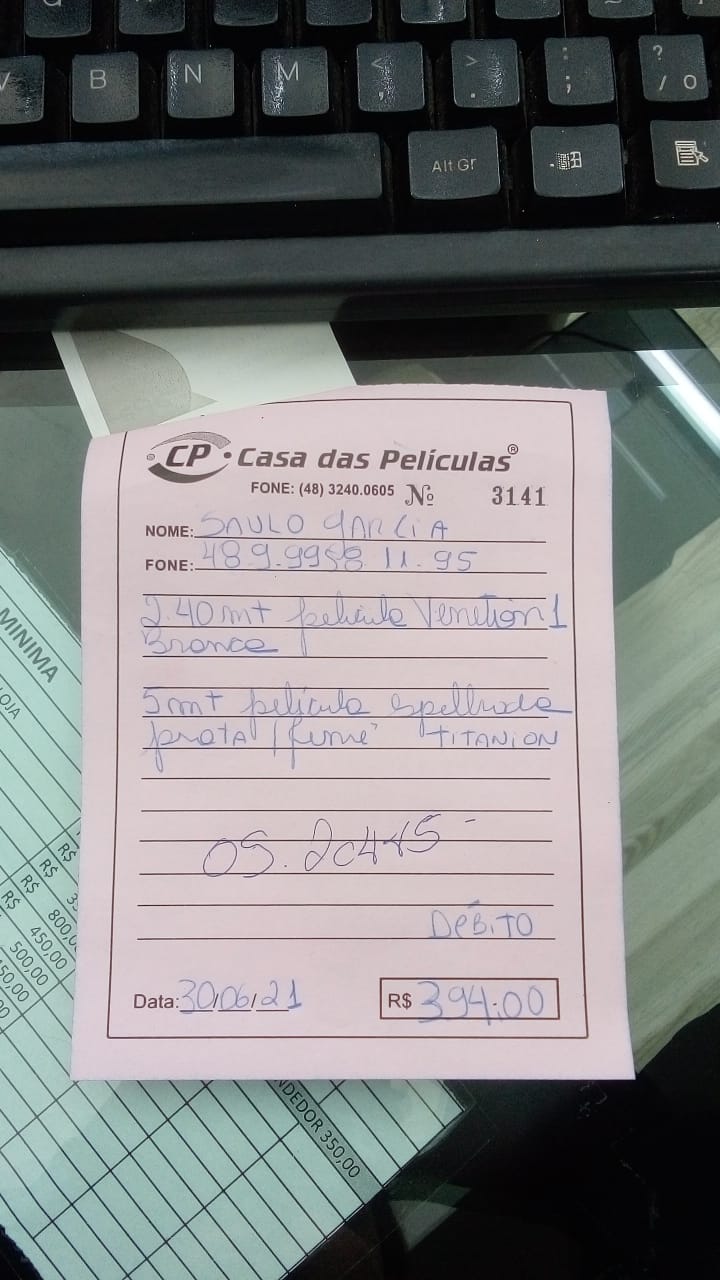 V B N M < , > . : ; ? / O
Alt Gr
CP Casa das Películas®
FONE: (48) 3240.0605 Nº 3141
NOME: SAULO GARCIA
FONE: 489.9958 11.95
2.40mt película Venetion 1
Branca
5mt película espelhada
prata/fumê TITANION
OS.
DÉBITO
Data: 30/06/21 R$ 394,00
MINIMA
LOJA
R$
R$ 800,0
R$ 450,00
500,00
NDEDOR 350,00